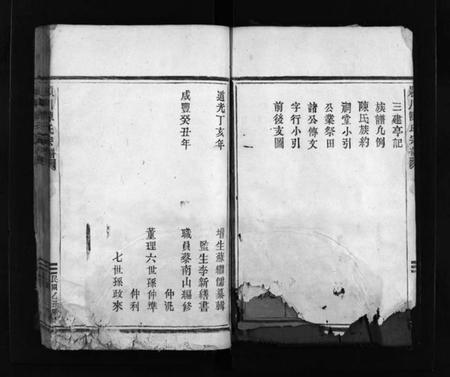 三建亭記
族譜凡例
陳氏族約
祠堂小引
公業祭田
諸公傳文
字行小引
前後支圖
道光丁亥年
增生蘇繼儒纂輯
監生李新繕書
咸豐癸丑年
職員蔡南山編修
仲
董理六世孫仲準
仲利
七世孫政來